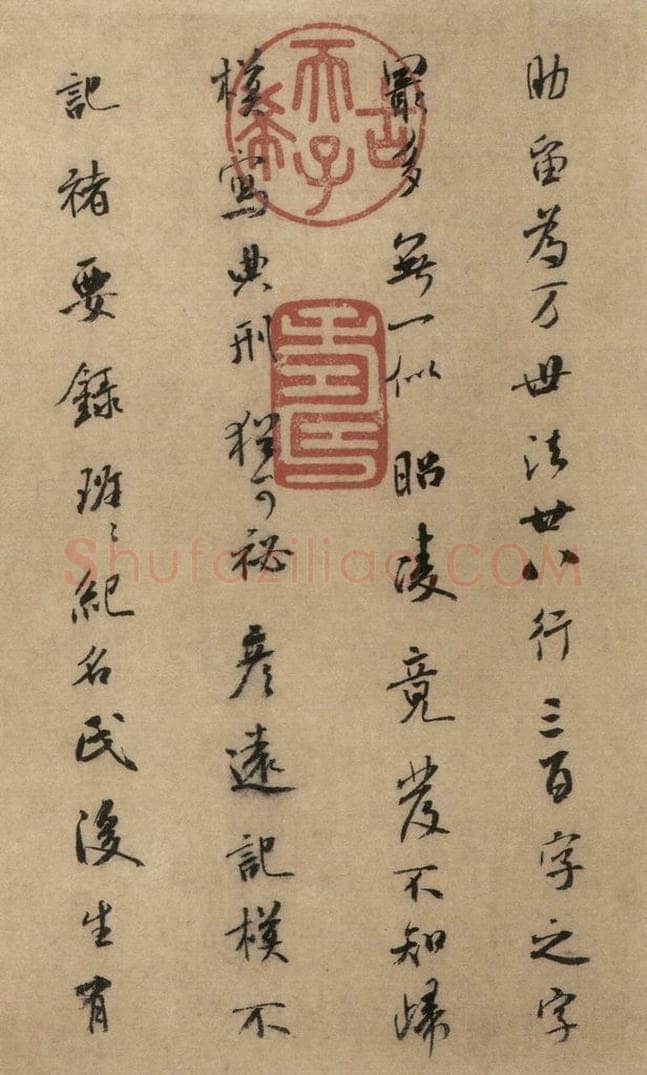 助留為万世法廿八行三百字之字
最多無一似昭陵竟發不知歸
模寫典刑猶可祕彥遠記模不
記褚要録班〻紀名氏後生有
古希天子
壽
Shufaziliao.COM